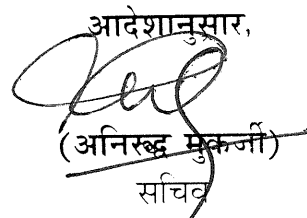 आदेशानुसार,
(अनिरुद्ध मुकर्जी)
सचिव